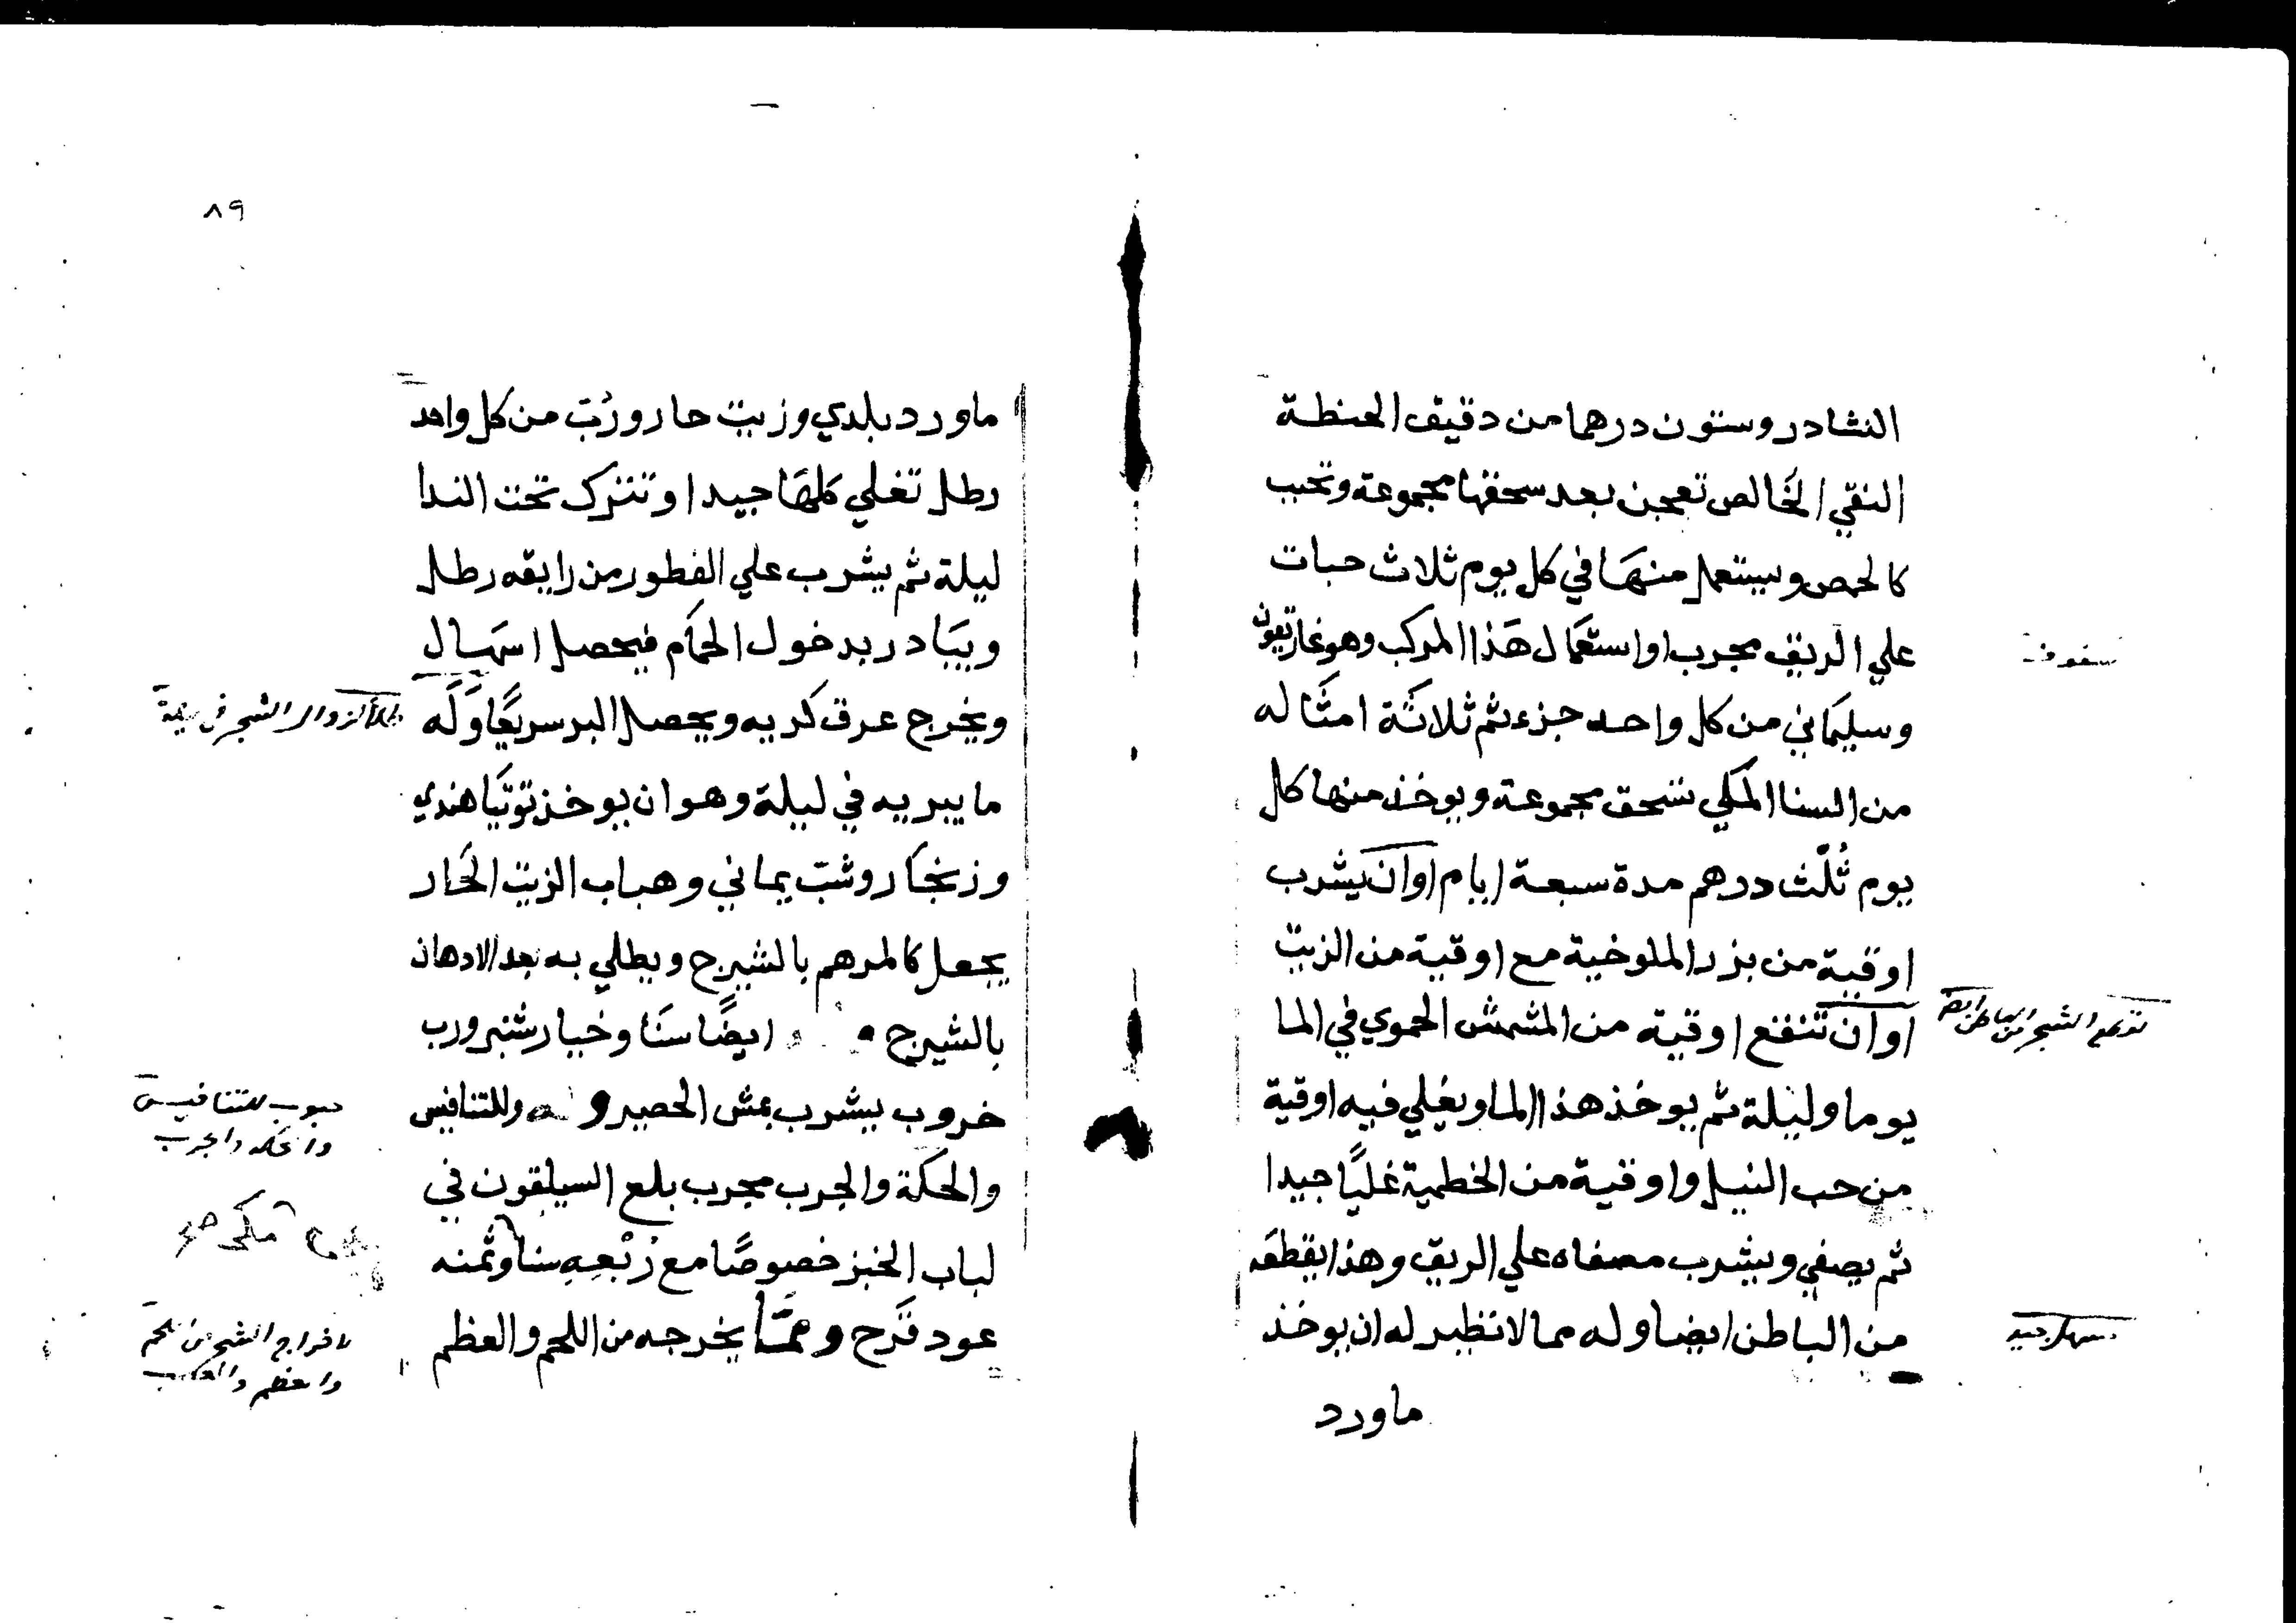 النشادر وستون درهما من دقيق الحنطة
النقي الخالص تعجن بعد سحقها مجموعة وتحبب
كالحمص ويستعمل منها في كل يوم ثلاث حبات
علي الريق مجرب او استعمال هذا المركب وهو غاريقون
وسليماني من كل واحد جزء ثم ثلاثة امثاله
من السنا المكي تسحق مجموعة ويوخذ منها كل
يوم ثُلُث درهم مدة سبعة ايام او ان يشرب
اوقية من بزر الملوخية مع اوقية من الزيت
او ان تنقع اوقية من المشمش الحموي في الما
يوما وليلة ثم يوخذ هذا الما ويغلي فيه اوقية
من حب النيل واوقية من الخطمية غليًا جيدا
ثم يصفي ويشرب مصفاه علي الريق وهذا يقطعه
من الباطن ايضا وله مما لا نظير له ان يوخذ
ماورد
سفوف
مسهل جيد
٨٩
ماورد بلدي وزيت حار ورُبّ من كل واحد
رطل تغلي كلها جيدا وتترك تحت الندا
ليلة ثم يشرب علي الفطور من رايقه رطل
ويبادر بدخول الحمام فيحصل اسهال
ويخرج عرق كريه ويحصل البر سريعًا وَلَه
ما يبريه في ليلة وهو ان يوخذ توتيا هندي
وزنجار وشب يماني وهباب الزيت الحار
يجعل كالمرهم بالشيرج ويطلي به بعد الادهان
بالشيرج ايضًا سنا وخيار شنبر ورب
خروب يشرب بمش الحصير وللتنافيس
والحكة والجرب مجرب بلع السيلقون في
لباب الخبز خصوصًا مع رُبْعِهِ سنا وثمنه
عود قَرح وممّا يخرجه من اللحم والعظم
حبوب للتنافيس
والحكه والجرب
لاخراج الشجر من اللحم
والعظم